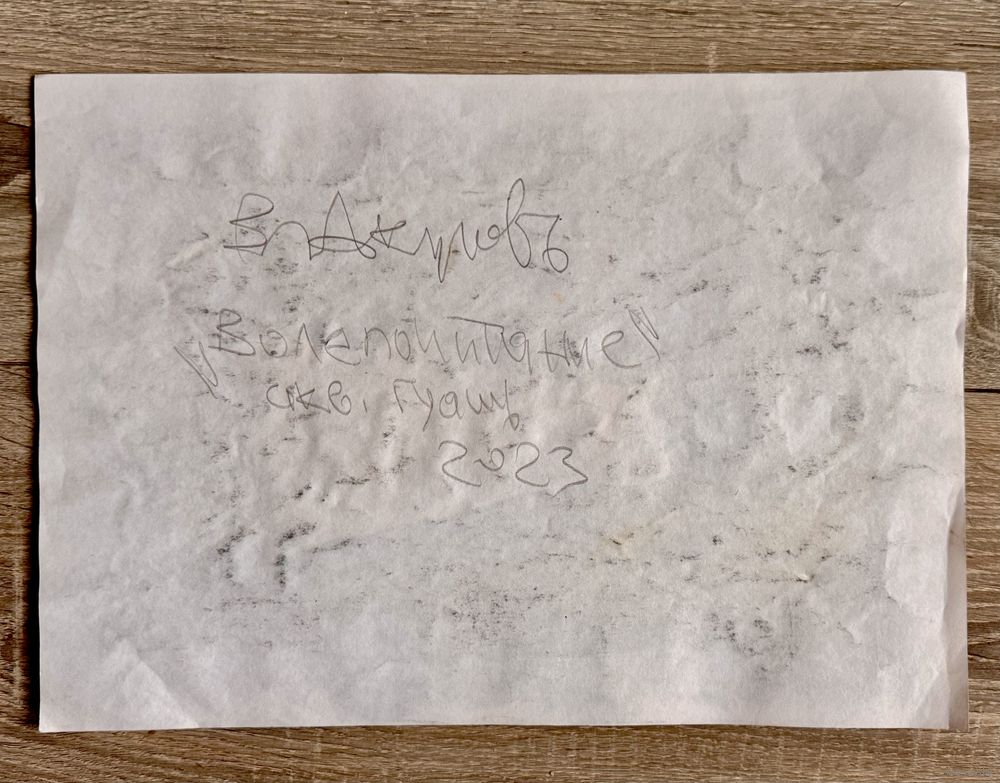 Вл Акуловъ
"Волепочитание"
акв. гуашь
2023